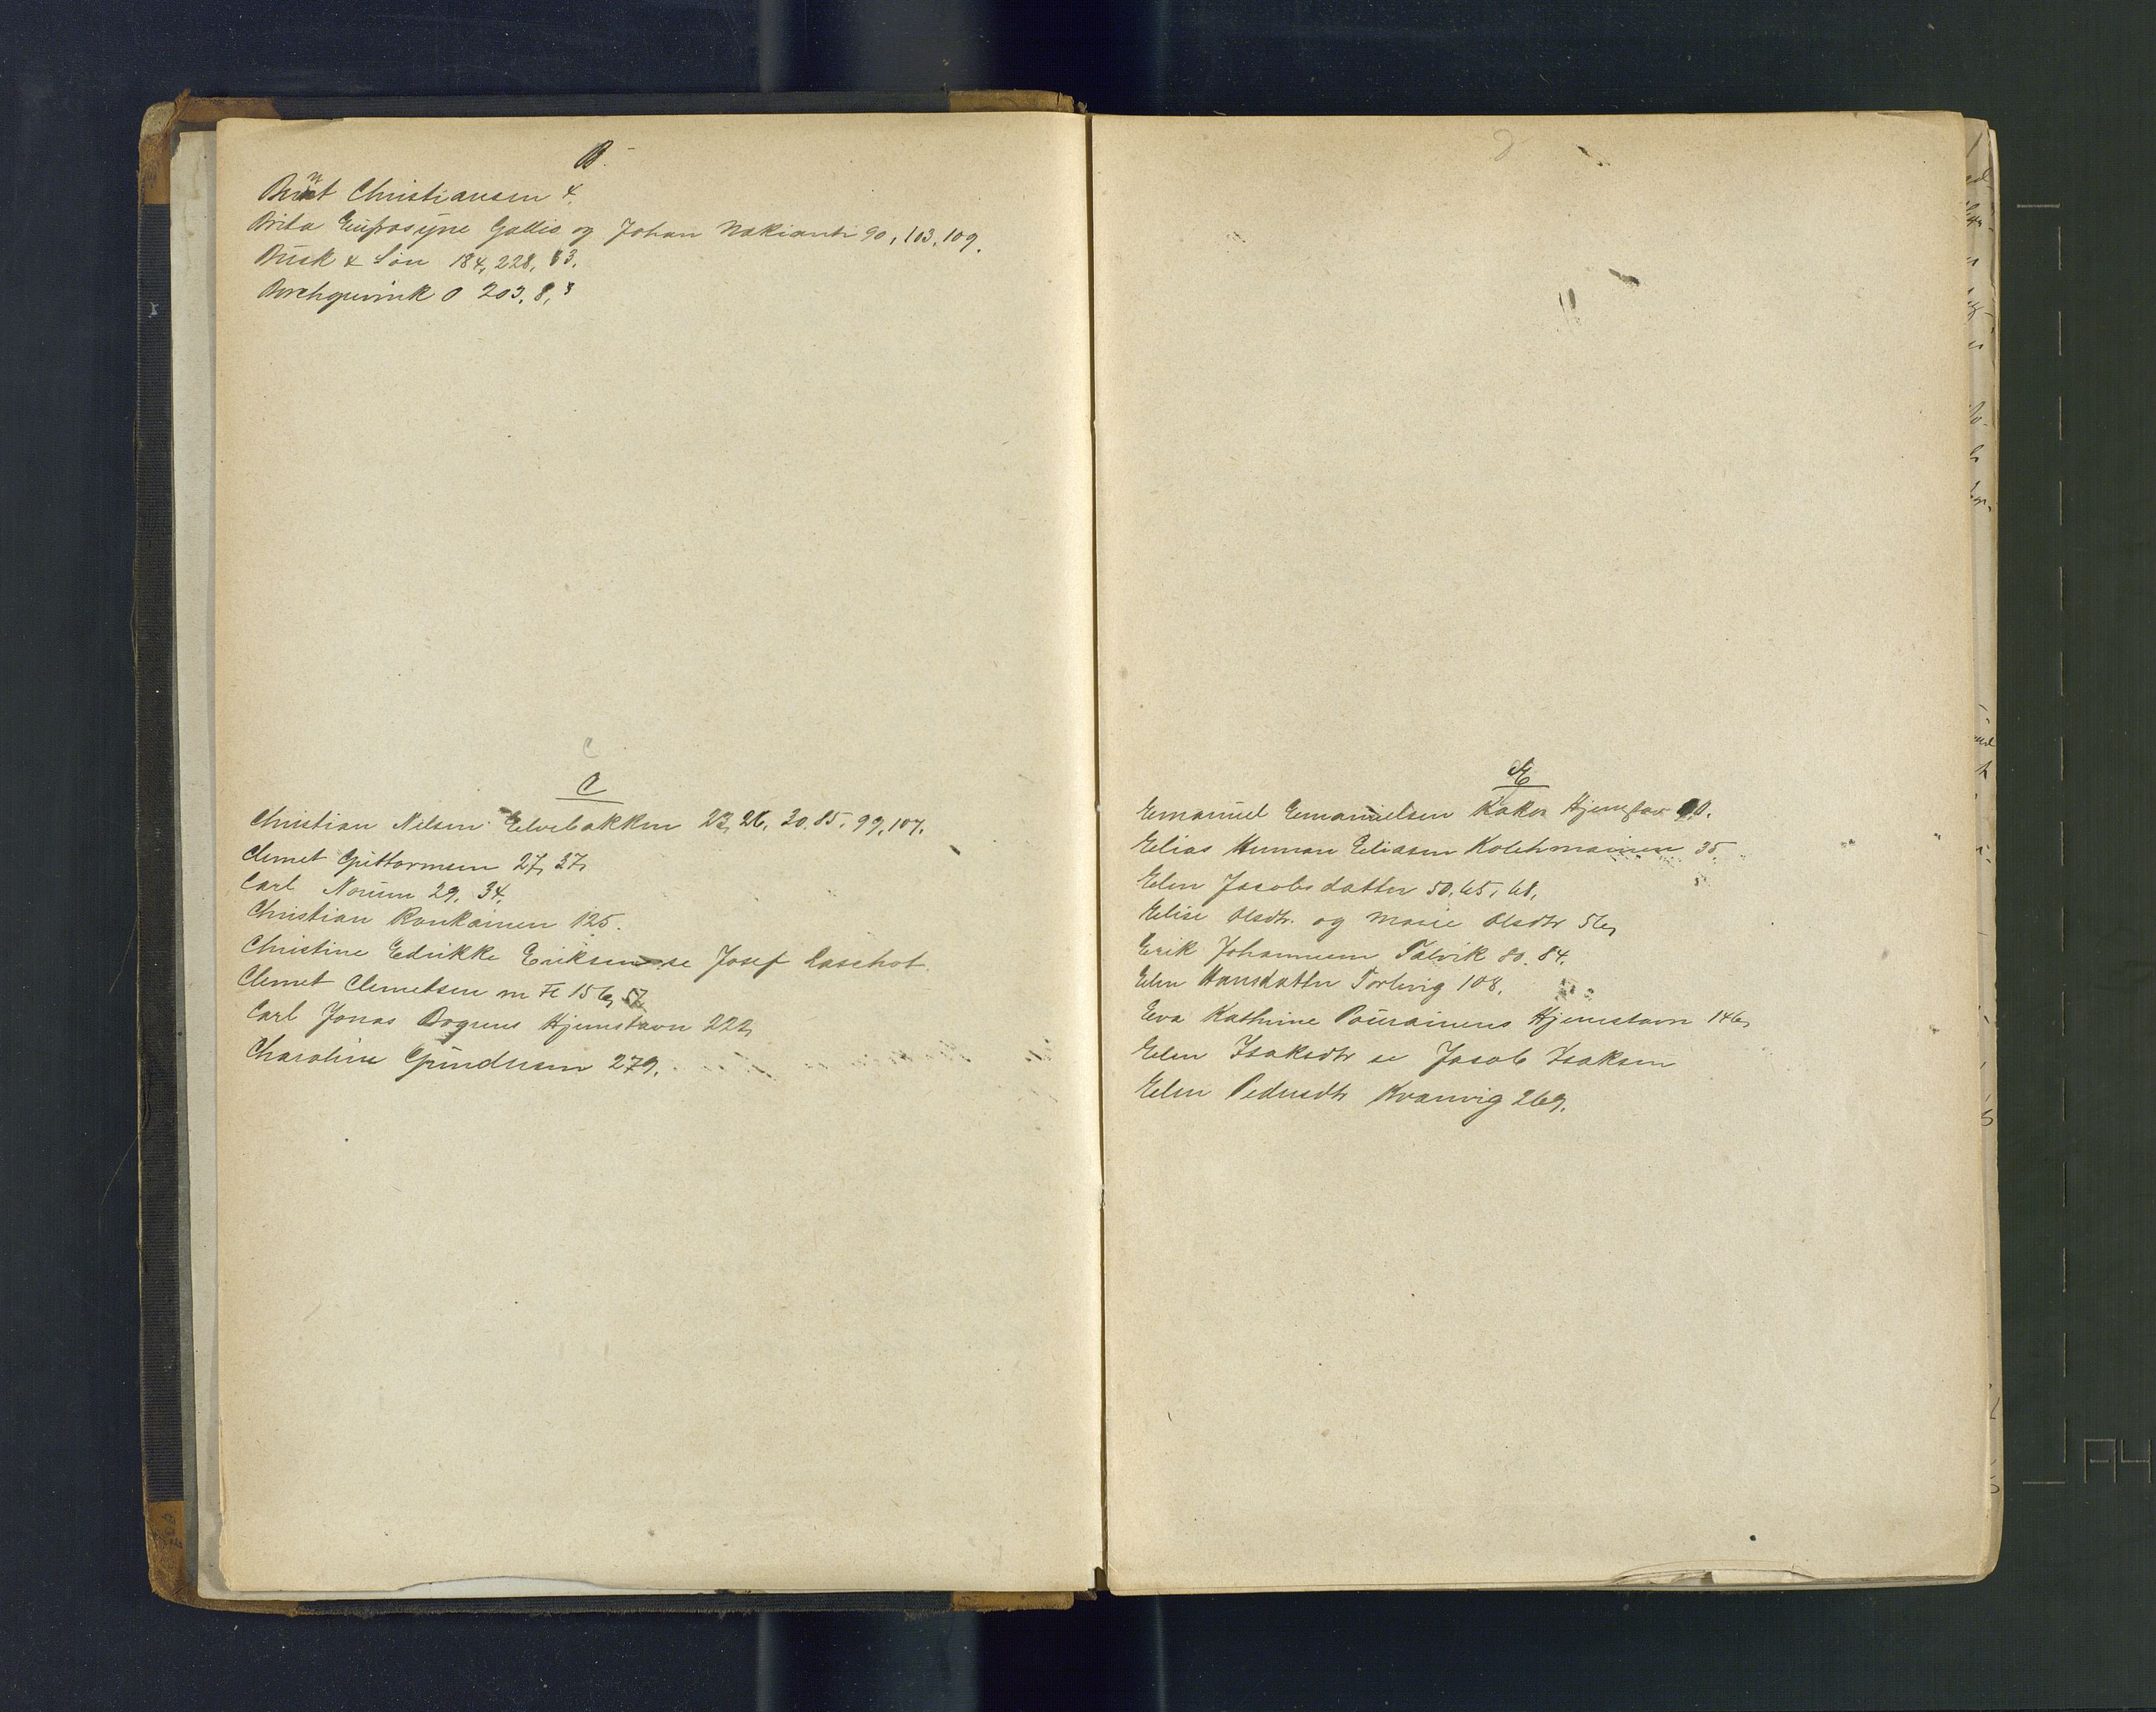 B.
Bernt Christiansen 4.
Brita Eufrosyne Gallis og Johan Nakianti 90, 103, 109.
Busk & Søn 184, 228, 63.
Borchgrevink O 203, 8, 8
C
C
Christian Nilsen Elvebakken 23, 26, 30, 85, 99, 107.
Clemet Guttormsen 27, 37,
Carl Norum 29, 34,
Christian Ronkainen 125.
Christine Edrikke Eriksen se Josef
Clemet Clemetsen m Fl 156, 57
Carl Jonas Hjemstavn 222,
Charoline Gundersen 279.
D
E
Emanuel Emanuelsen Hjemstav
Elias Herman Eliasen Kolehmainen 35.
Elen Jacobsdatter 50, 65, 68,
Elise Olsdtr. og Marie Olsdtr 56,
Erik Johannesen Talvik 80, 84.
Elen Hansdatter Torbvig 108.
Eva Kathrine Pourainens Hjemstavn 146,
Elen Isaksdtr se Jacob Isaksen
Elen Pedersdtr Kvænvig 269.
A4